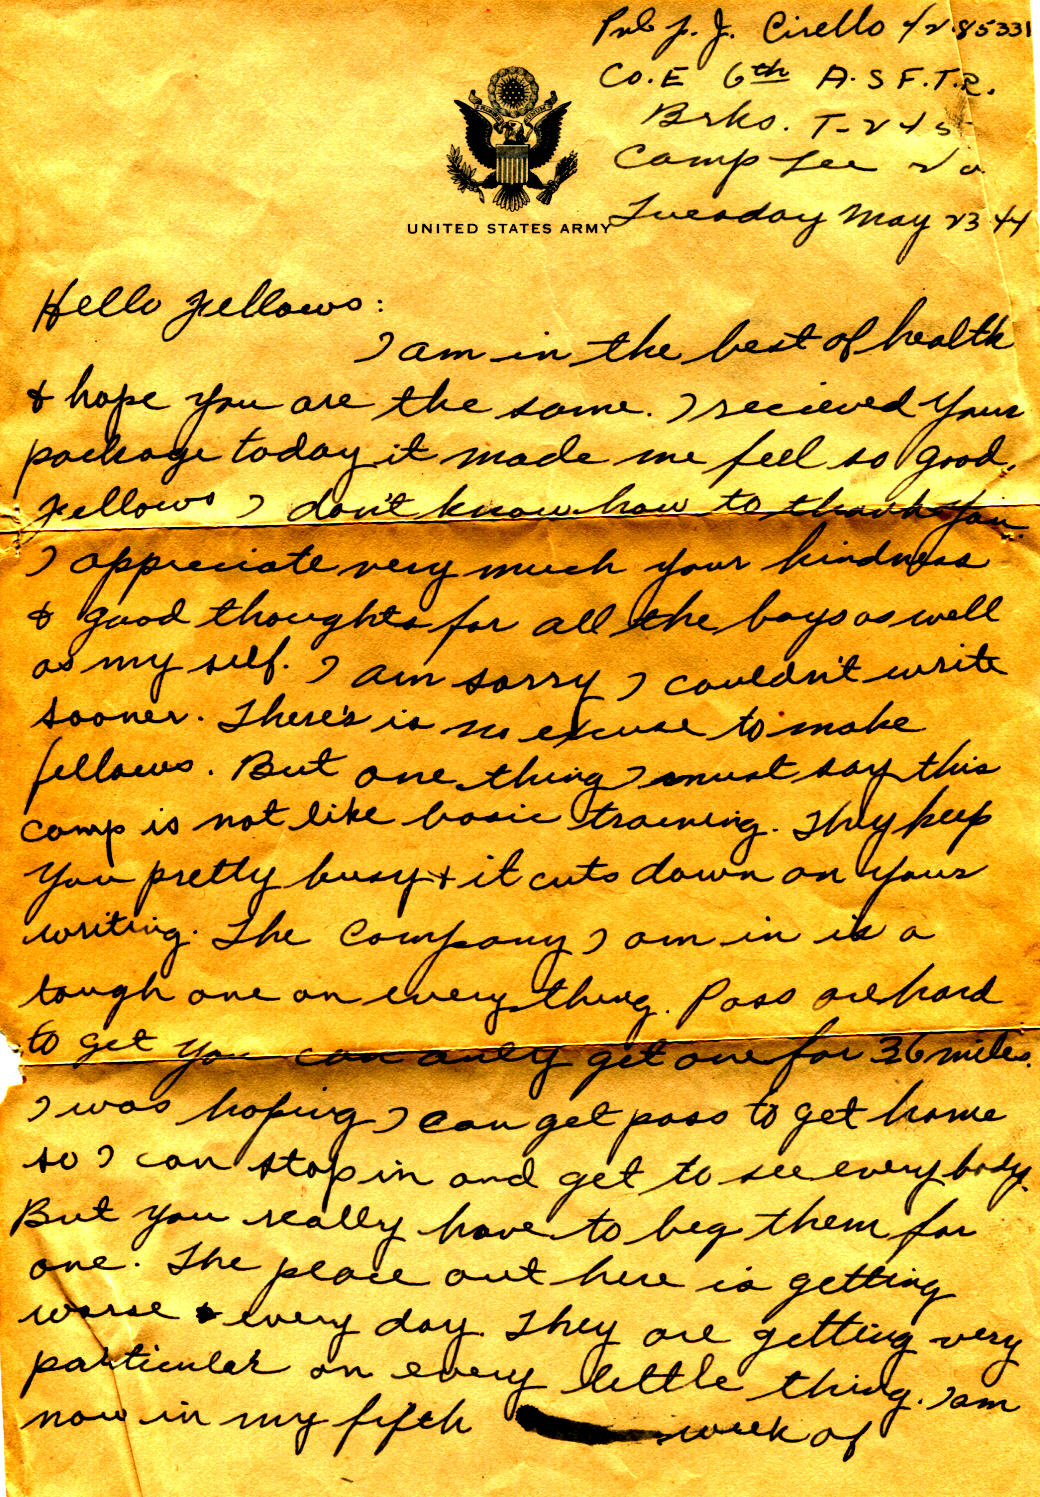 Pvt J. J. Cirello 42285331
Co. E 6th A.S.F.T.R.
Brks. T-245
Camp Lee Va
UNITED STATES ARMY
Tuesday May 23 44
Hello Fellows:
I am in the best of health
& hope you are the same. I recieved your
package today it made me feel so good.
Fellows I don't know how to thank you.
I appreciate very much your kindness
& good thoughts for all the boys as well
as my self. I am sorry I couldn't write
sooner. There's is no excuse to make
fellows. But one thing I must say this
camp is not like basic training. They keep
you pretty busy & it cuts down on your
writing. The Company I am in is a
tough one on every thing. Pass are hard
to get you can only get one for 36 miles.
I was hoping I can get pass to get home
so I can stop in and get to see every body.
But you really have to beg them for
one. The place out here is getting
worse every day. They are getting very
particular on every little thing. I am
now in my fifth week of